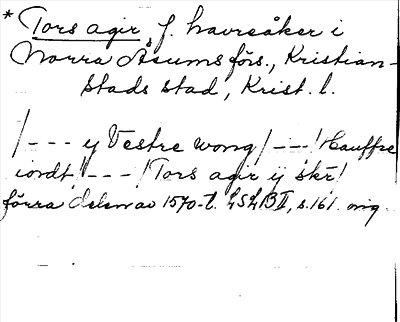 * Tors agir, f. havreåker i
Norra Åsums förs., Kristian-
stads stad, Krist. l.
/--- y Vestre wong/---/Hauffre
iordt/---/Tors agir ÿ skr/
förra delen av 1570-t. LSLB II, s. 161. orig.